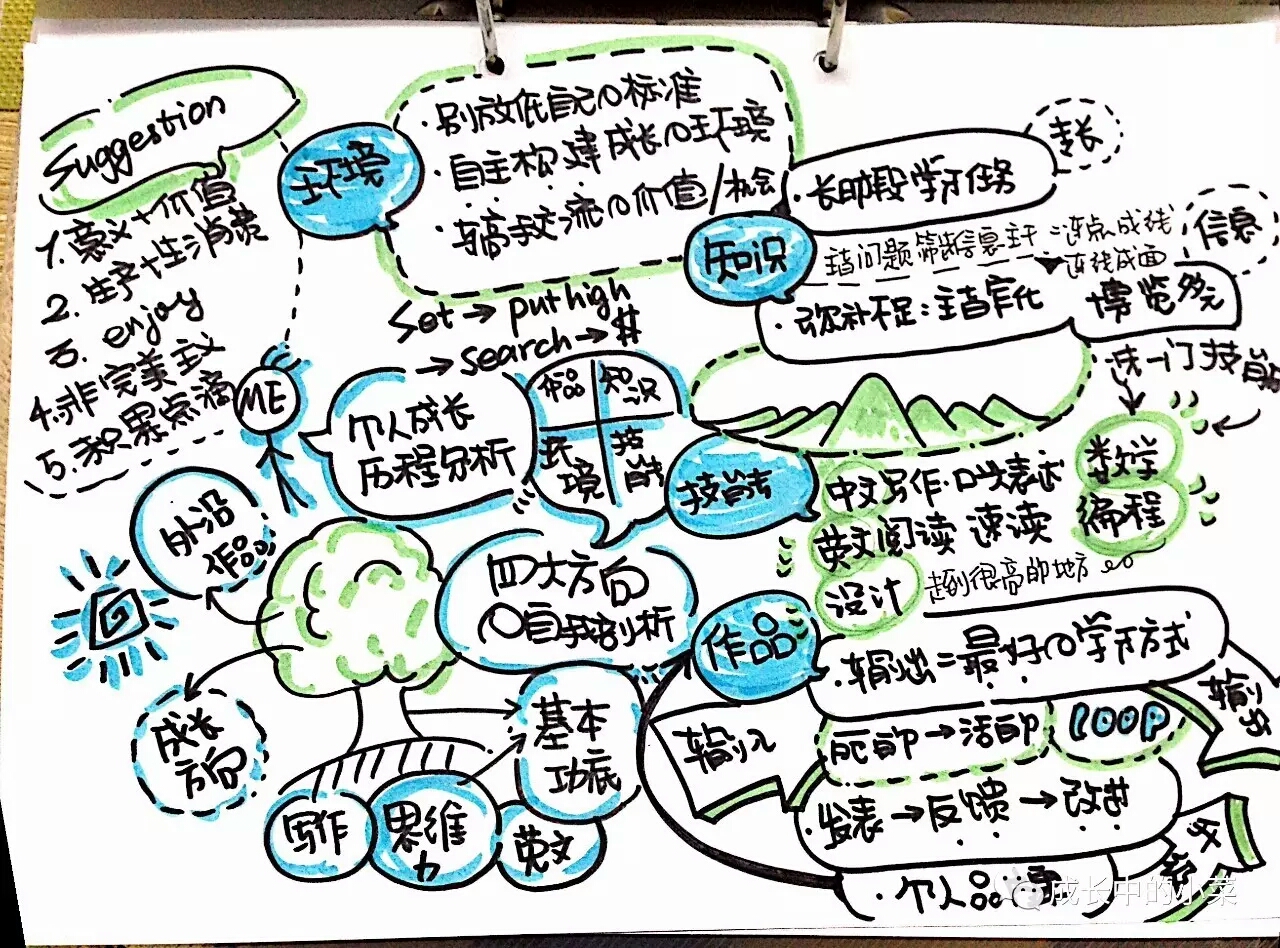 Suggestion
1. 意义+价值
2. 生产+生消费
3. enjoy
4. 非完美主义
5. 积累点滴
环境
·别放低自己的标准
·自主构建成长的环境
·与高手交流的价值/机会
Set→put high
→search→#
专长
·长时段学习任务
知识
主有问题筛选信息主干=连点成线
连线成面
信息
·弥补不足:主有官化
博览多元
选一门技能
ME
个人成长
历程分析
作品
知识
环境
技能
技能
中文写作·口头表述
英文阅读 速读
设计
数学
编程
走到很高的地方
外沿
作品
四大方向
的自我剖析
作品
·输出=最好的学习方式
输入
死的→活的
LOOP
输出
·发表→反馈→改进
·个人品
成长
方向
基本
功底
写作
思维
力
英文
成长中的小菜